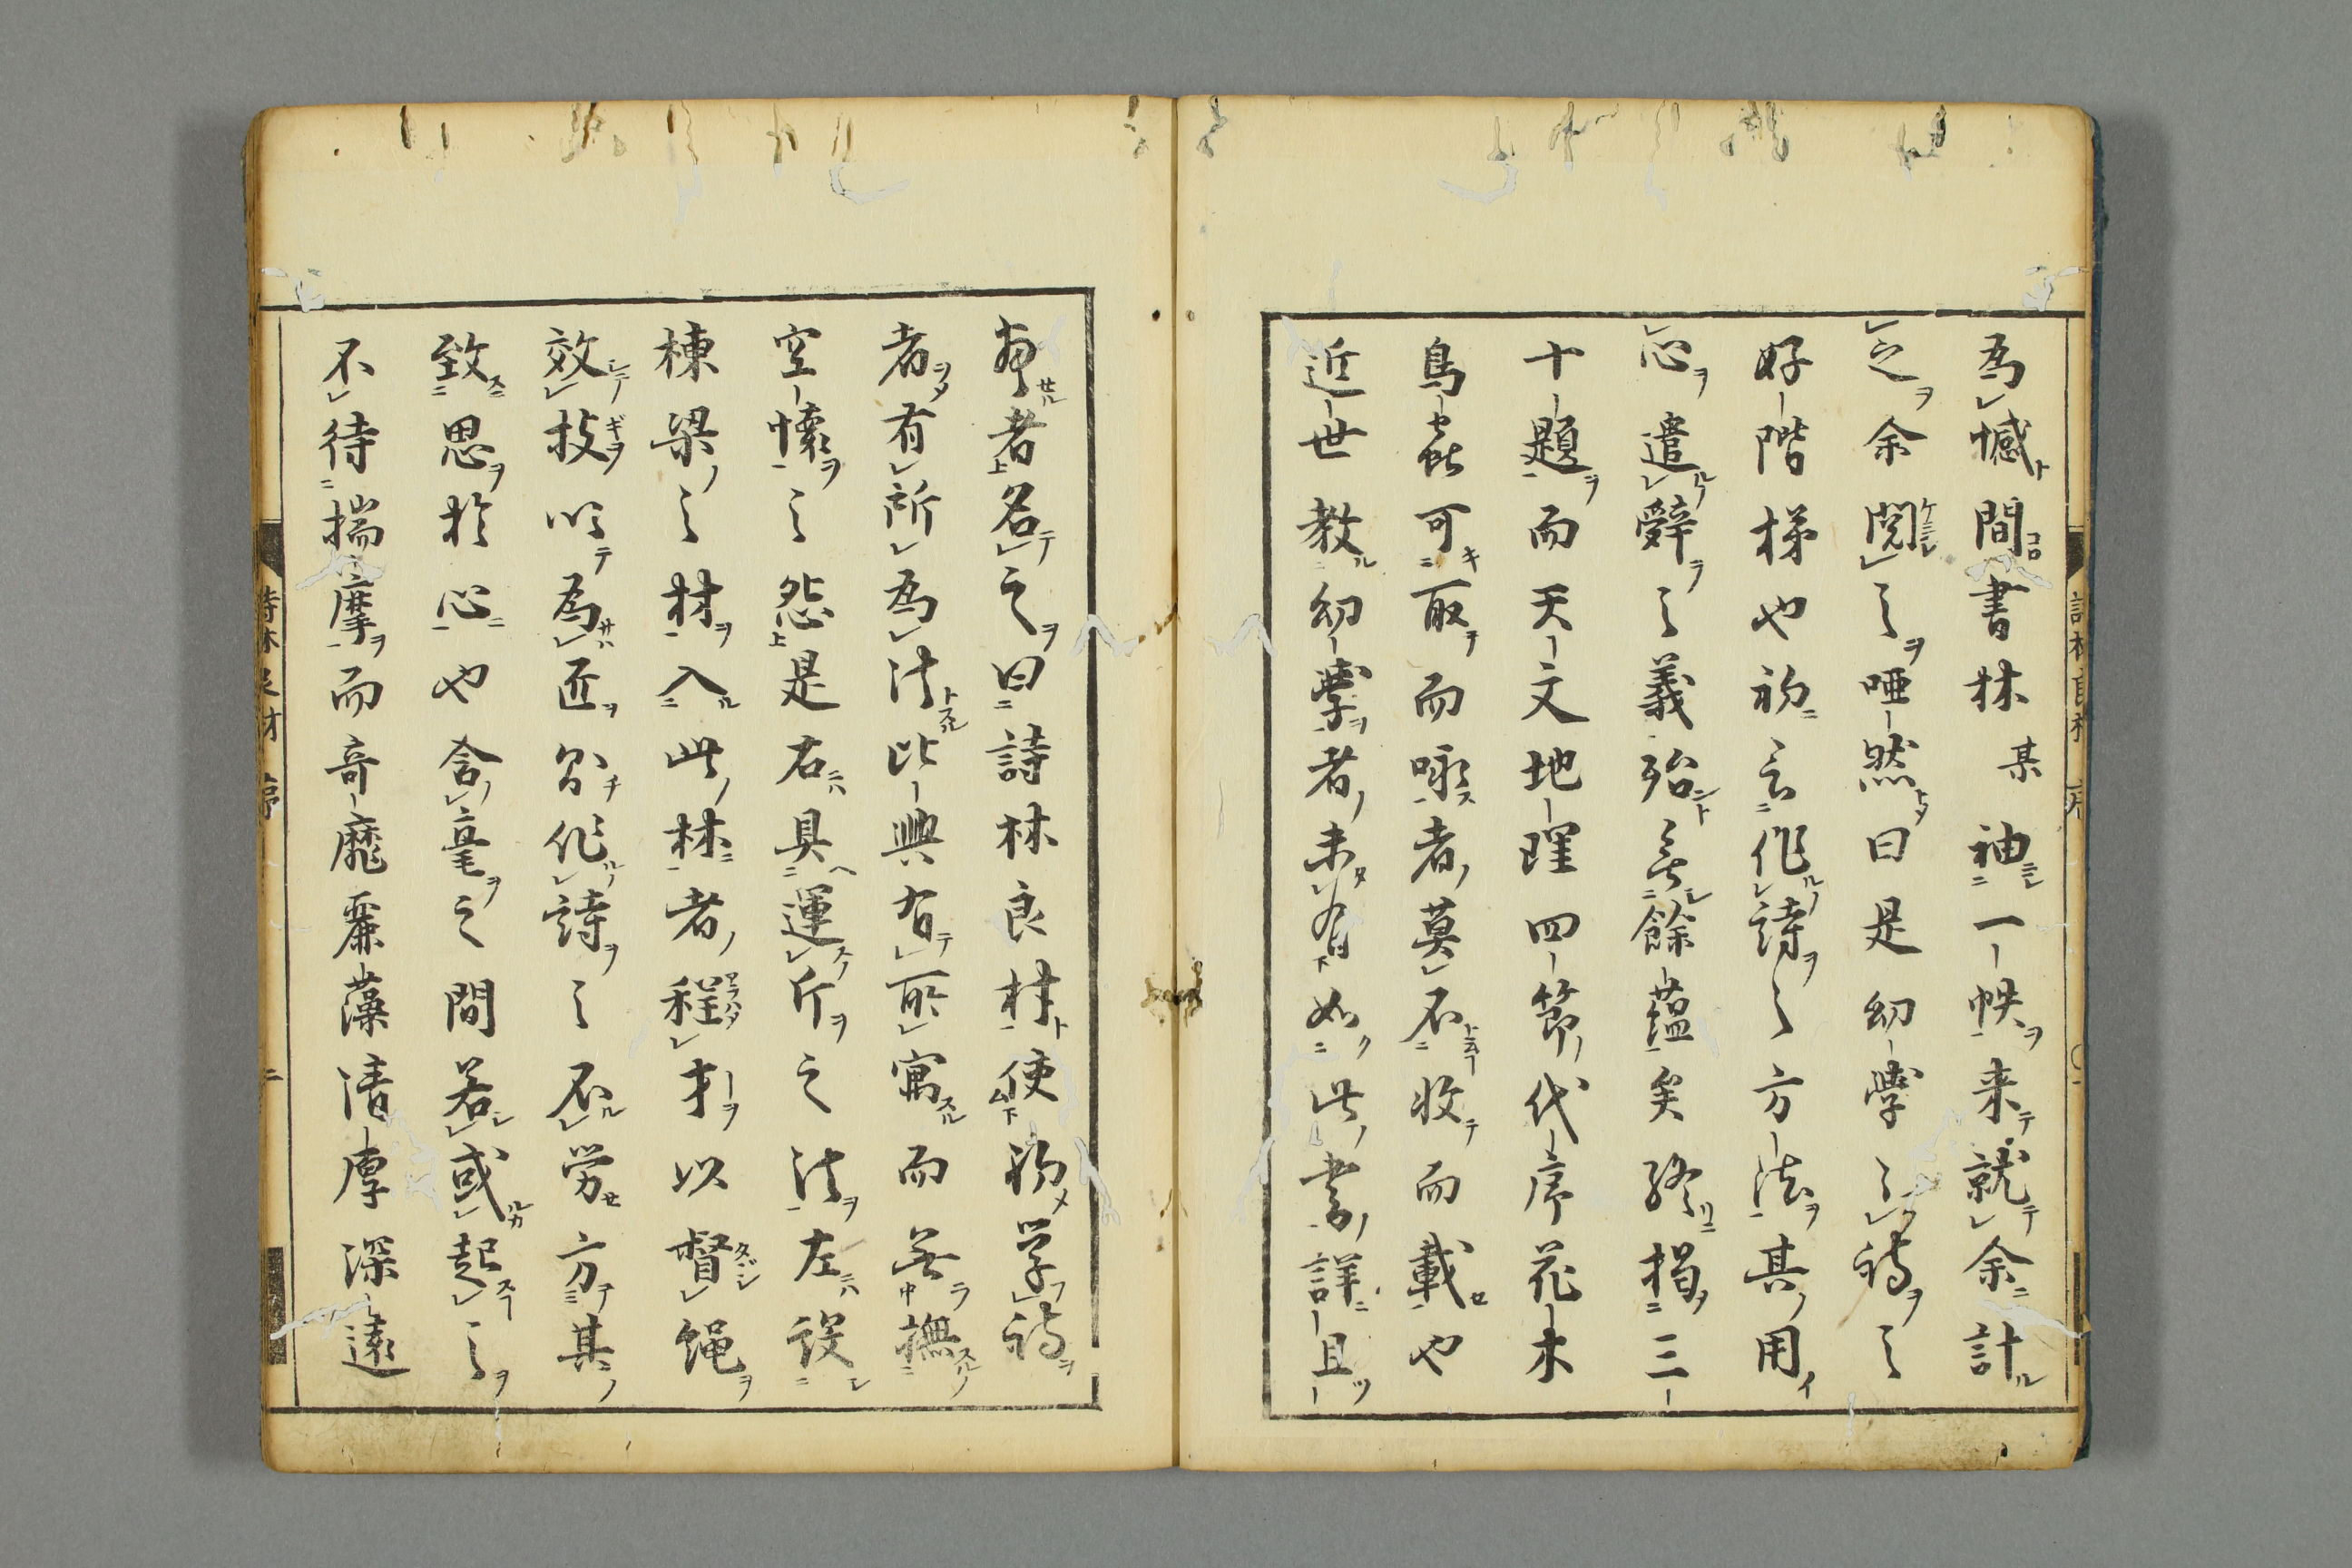 為憾間書林某袖一帙来就余計
之余閲之唖然曰是幼學之詩之
好階梯也初言作詩之方法其用
心遣辭之義殆無餘蘊矣終揭三
十題而天文地理四節代序花木
鳥蟲可取而咏者莫不收而載也
近世教幼學者未有如此書詳且
者名之曰詩林良材使初学詩
者有所為法比興有所寓而無撫
空懷之怨是右具運斤之法左設
棟梁之材入此林者程才以督绳
效技以為匠分作詩之不労方其
致思於心也含毫之間若或起之
不待揣摩而奇靡麗藻清厚深遠
詩林良材 序 二